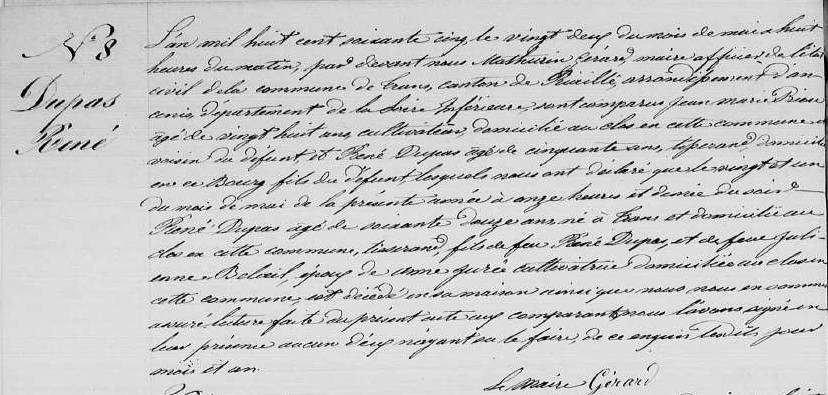 N° 8
Dupas
René
L'an mil huit cent soixante cinq, le vingt deux du mois de mai à huit
heures du matin, par devant nous Mathurin Gérard, maire officier de l'état
civil de la commune de Trans, canton de Riaillé, arrondissement d'an
cenis, département de la Loire Inférieure, sont comparus Jean Marie
agé de vingt huit ans, cultivateur, domicilié au clos en cette commune et
voisin du défunt et René Dupas agé de cinquante ans, tisserand domicilié
en ce Bourg fils du défunt, lesquels nous ont déclaré que le vingt et un
du mois de mai de la présente année à onze heures et demie du soir
René Dupas agé de soixante douze ans né à Trans et domicilié au
clos en cette commune, tisserand, fils de feu René Dupas, et de feue Juli
enne époux de anne cultivatrice domiciliée au clos en
cette commune, est décédé en sa maison ainsi que nous nous en sommes
assuré, lecture faite du présent acte aux comparants nous l'avons signé en
leur présence aucun d'eux noyant su le faire de ce enquis lesdits jour
mois et an.
Le Maire Gérard